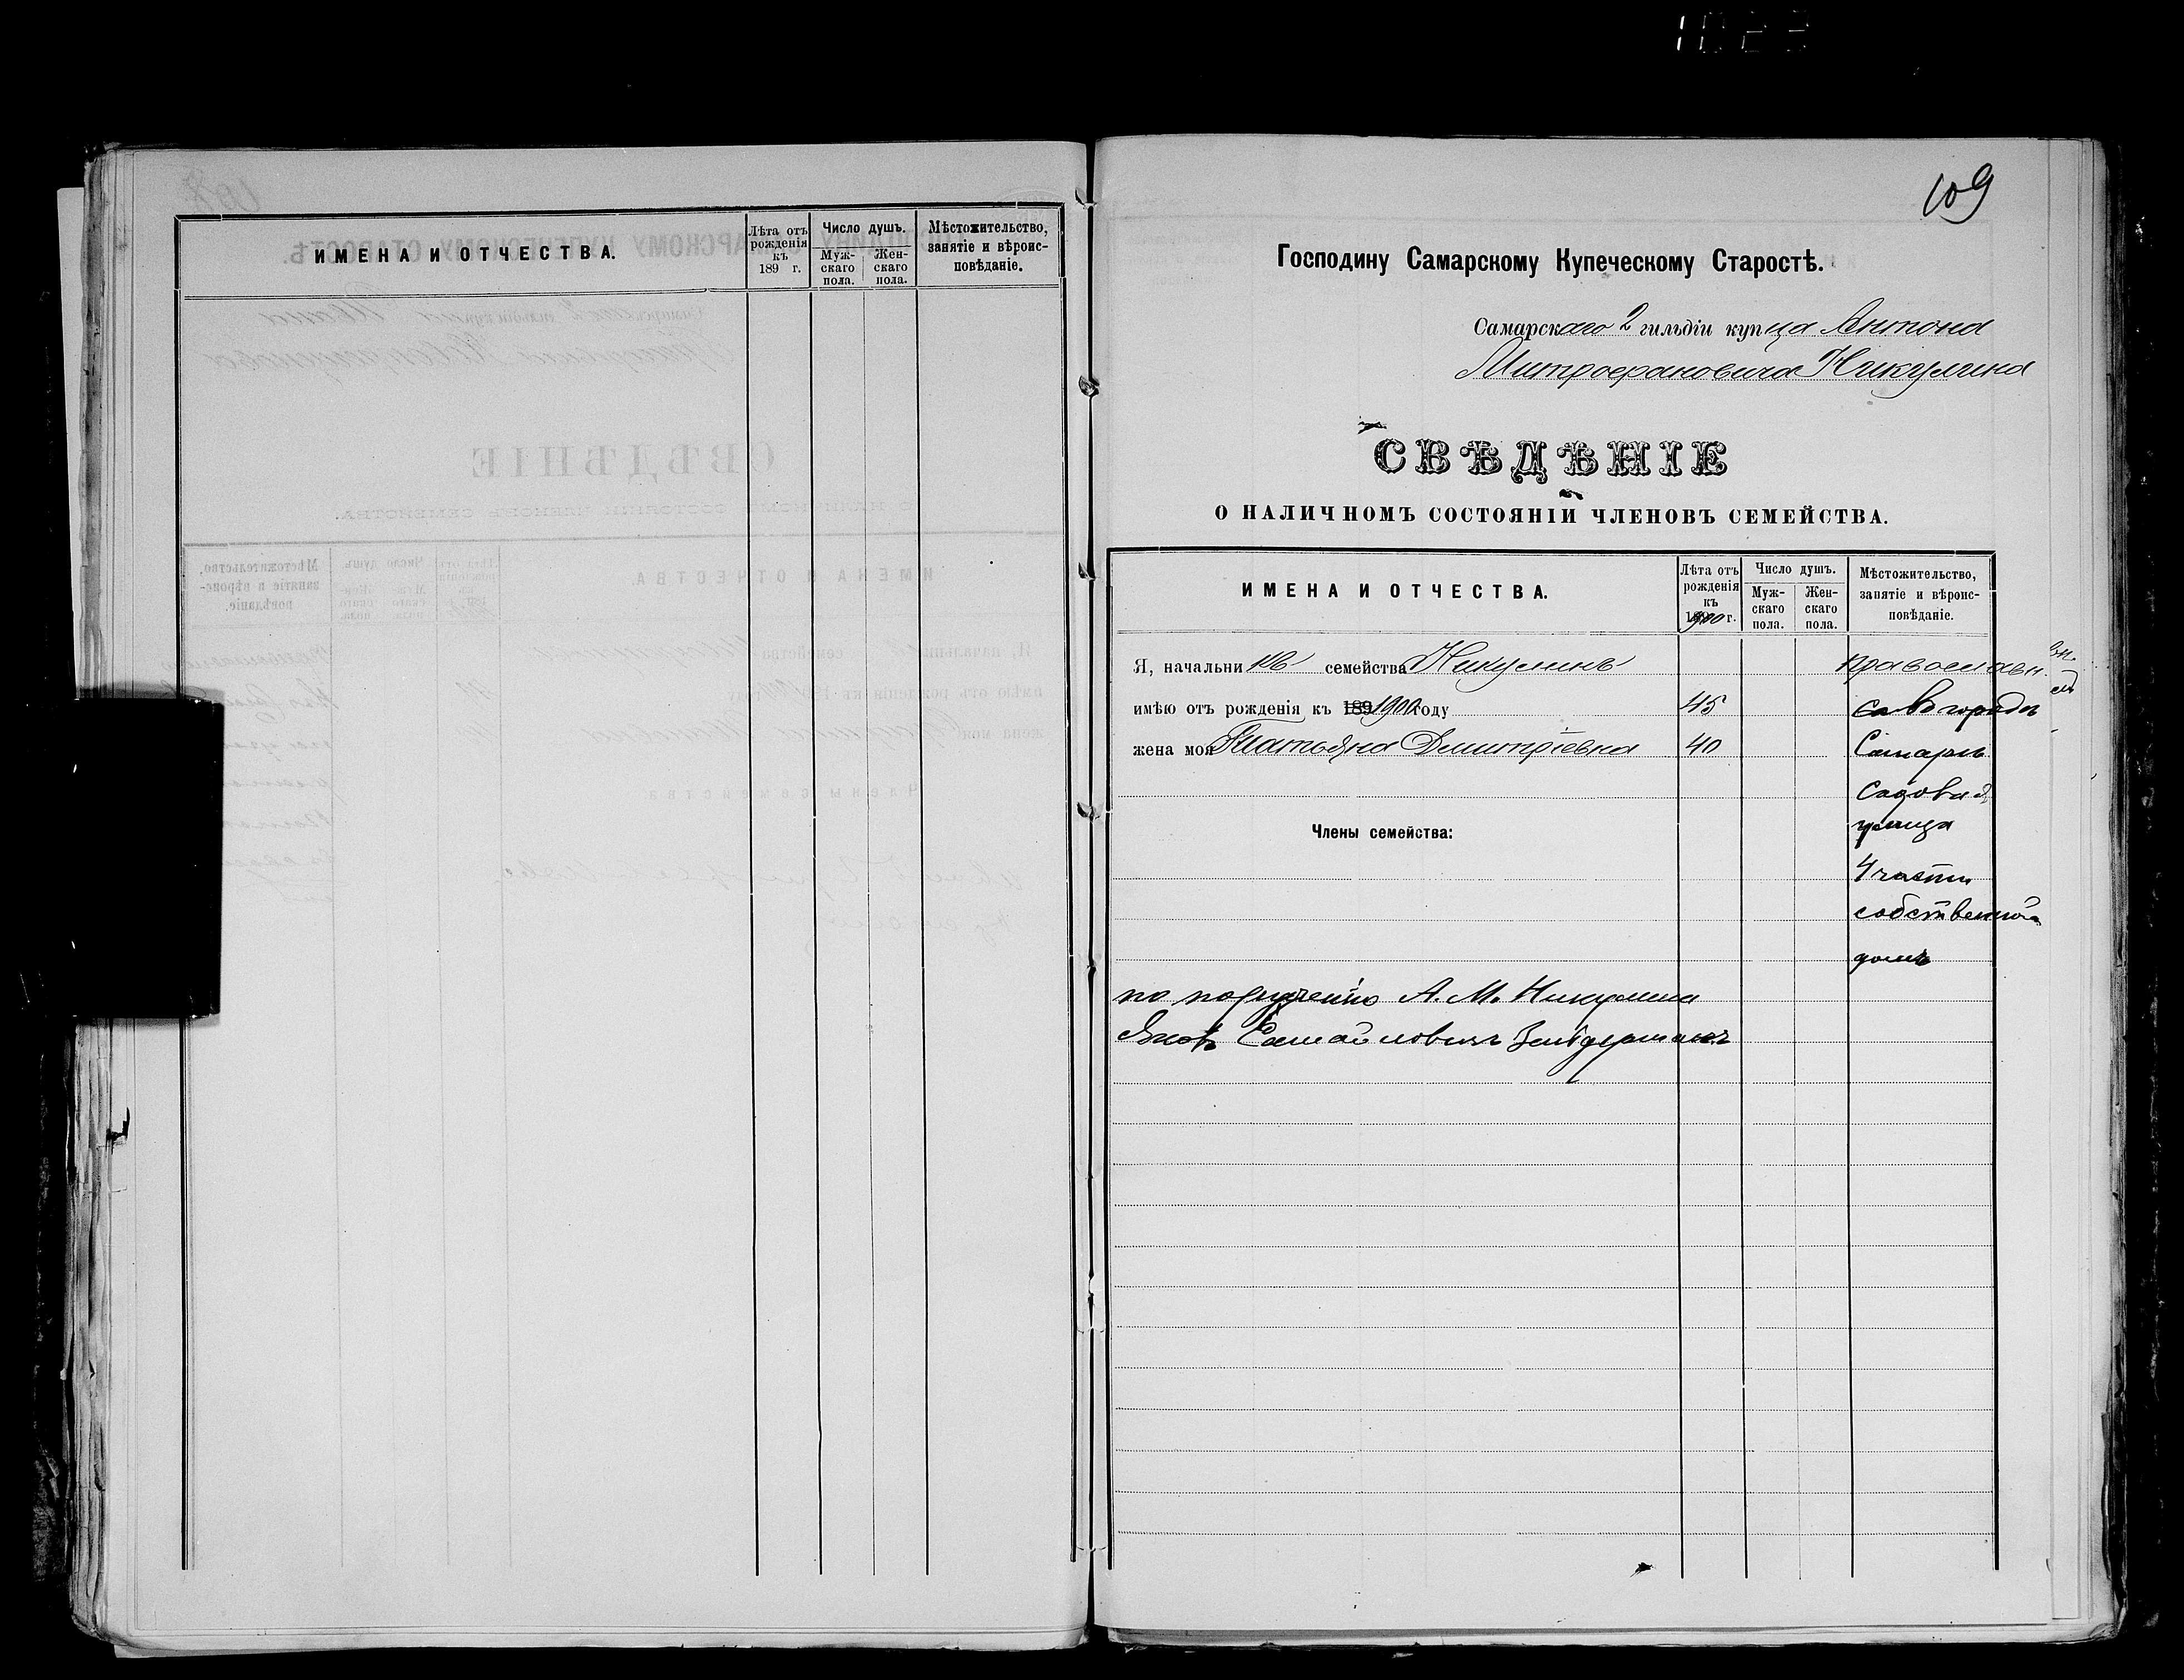 ИМЕНА И ОТЧЕСТВА.
Лѣта отъ рожденія къ 189 г.
Число душъ.
Мужскаго пола.
Женскаго пола.
Мѣстожительство, занятіе и вѣроисповѣданіе.
109
Господину Самарскому Купеческому Старостѣ.
Самарскаго 2 гильдіи купца Антона
Митрофановича Никулина
СВѢДѢНІЕ
О НАЛИЧНОМЪ СОСТОЯНІИ ЧЛЕНОВЪ СЕМЕЙСТВА.
ИМЕНА И ОТЧЕСТВА.
Лѣта отъ рожденія къ 1900 г.
Число душъ.
Мужскаго пола.
Женскаго пола.
Мѣстожительство, занятіе и вѣроисповѣданіе.
Я, начальникъ семейства Никулинъ православн.
имѣю отъ рожденія къ 189 1900 году 45 въ городѣ
жена моя Татьяна Дмитріевна 40 Самарѣ
Садовая
Члены семейства: улица
4 части
собственной
домъ
по порученію А. М. Никулина
Яковъ Самойловичъ